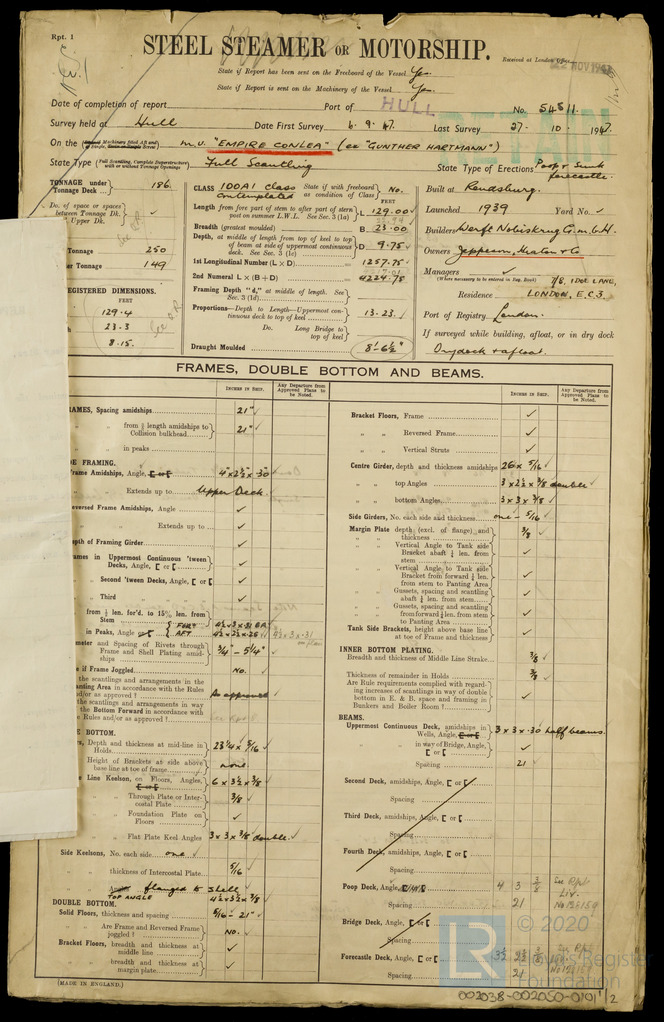 Rpt. 1
STEEL STEAMER OR MOTORSHIP.
Received at London Office
NOV 194
State if Report has been sent on the Freeboard of the Vessel Yes.
State if Report is sent on the Machinery of the Vessel Yes.
Date of completion of report Port of HULL No. 54811.
Survey held at Hull Date First Survey 6. 9. 47. Last Survey 27. 10. 1947.
On the M.V. "EMPIRE CONLEA" (ex "GUNTHER HARTMANN")
State Type (Full Scantling, Complete Superstructure with or without Tonnage Openings) Full Scantling State Type of Erections Poop & Sunk forecastle.
TONNAGE under Tonnage Deck 186.
Do. of space or spaces between Tonnage Dk. Upper Dk. ✓
Tonnage 250
Tonnage 149
REGISTERED DIMENSIONS.
FEET
129.4
23.3
8.15.
CLASS 100A1 class contemplated State if with freeboard as condition of Class No.
FEET
Length from fore part of stem to after part of stern post on summer L.W.L. See Sec. 3 (1a) L 129.00
Breadth (greatest moulded) B 23.00
Depth, at middle of length from top of keel to top of beam at side of uppermost continuous deck. See Sec. 3 (1c) D 9.75
1st Longitudinal Number (L × D) 1257.75
2nd Numeral L × (B + D) 4224.75
Framing Depth "d," at middle of length. See Sec. 3 (1d)
Proportions—Depth to Length—Uppermost continuous deck to top of keel 13.23
Do. Long Bridge to top of keel
Draught Moulded 8'-6½"
Built at Rendsburg.
Launched 1939 Yard No. ✓
Builders Werft Nobiskrug G.m.b.H.
Owners Jeppesen, Heaton & Co
Managers ✓
(Where necessary to be entered in Reg. Book) 7/8, IDOL LANE,
Residence LONDON, E.C.3.
Port of Registry London.
If surveyed while building, afloat, or in dry dock
Drydock & afloat.
FRAMES, DOUBLE BOTTOM AND BEAMS.
INCHES IN SHIP. Any Departure from Approved Plans to be Noted.
FRAMES, Spacing amidships 21" ✓
" " from ⅕ length amidships to Collision bulkhead 21" ✓
" " in peaks ✓
SIDE FRAMING.
Frame Amidships, Angle 4" × 2½ × ·30
" " Extends up to Upper Deck.
Reversed Frame Amidships, Angle ✓
" " Extends up to ✓
Depth of Framing Girder ✓
Frames in Uppermost Continuous 'tween Decks, Angle, [ or [ ✓
" Second 'tween Decks, Angle, [ or [ ✓
" Third " " " ✓
from ⅕ len. for'd. to 15% len. from Stem
FORE 4½ × 3 × ·31 BA
in Peaks, Angle AFT 4½ × 2½ × ·25 4½ × 3 × ·31
Diameter and Spacing of Rivets through Frame and Shell Plating amidships ¾" - 5¼" ✓
State if Frame Joggled No.
the scantlings and arrangements in the Panting Area in accordance with the Rules and/or as approved? As approved
the scantlings and arrangements in way of the Bottom Forward in accordance with the Rules and/or as approved?
BOTTOM.
Floors, Depth and thickness at mid-line in Holds 23¼ × 5/16 ✓
Height of Brackets at side above base line at toe of frame none
Line Keelson, on Floors, Angles, 6 × 3½ × ⅜
" Through Plate or Intercostal Plate ⅜ ✓
" Foundation Plate on Floors ✓
" Flat Plate Keel Angles 3 × 3 × ⅜ double. ✓
Side Keelsons, No. each side one. ✓
" thickness of Intercostal Plate 5/16
" Angle flanged to shell
TOP ANGLE 4½ × 3½ × ⅜
DOUBLE BOTTOM.
Solid Floors, thickness and spacing 5/16 - 21" ✓
" Are Frame and Reversed Frame joggled? No.
Bracket Floors, breadth and thickness at middle line ✓
" breadth and thickness at margin plate ✓
(MADE IN ENGLAND.)
INCHES IN SHIP. Any Departure from Approved Plans to be Noted.
Bracket Floors, Frame ✓
" " Reversed Frame ✓
" " Vertical Struts ✓
Centre Girder, depth and thickness amidships 26 × 5/16 ✓
" " top Angles 3 × 2½ × ⅜ double
" " bottom Angles 3 × 3 × ⅜ ✓
Side Girders, No. each side and thickness one - 5/16
Margin Plate depth (excl. of flange) and thickness ⅜ ✓
" " Vertical Angle to Tank side Bracket abaft ¼ len. from stem ✓
" " Vertical Angle to Tank side Bracket from forward ¼ len. from stem to Panting Area ✓
" " Gussets, spacing and scantling abaft ¼ len. from stem ✓
" " Gussets, spacing and scantling from forward ¼ len. from stem to Panting Area ✓
Tank Side Brackets, height above base line at toe of Frame and thickness ✓
INNER BOTTOM PLATING.
Breadth and thickness of Middle Line Strake ⅜
Thickness of remainder in Holds ⅜ ✓
Are Rule requirements complied with regarding increases of scantlings in way of double bottom in E. & B. space and framing in Bunkers and Boiler Room? ✓
BEAMS.
Uppermost Continuous Deck, amidships in Wells, Angle 3 × 3 × ·30 half beams.
" " in way of Bridge, Angle, [ or [ ✓
" " Spacing 21 ✓
Second Deck, amidships, Angle, [ or [
" " Spacing
Third Deck, amidships, Angle, [ or [
" " Spacing
Fourth Deck, amidships, Angle, [ or [
" " Spacing
Poop Deck, Angle 4 3 ⅜ See Rpt
" " Spacing 21 Liv. No 126159
Bridge Deck, Angle, [ or [
" " Spacing
Forecastle Deck, Angle, [ or [ 3½ 2½
" " Spacing 21
© 2020
LR
Lloyd's Register Foundation
002038-002050-0101 1/2